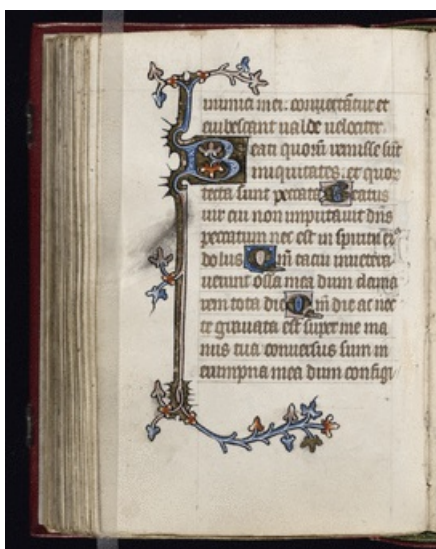 Inimici mei. conuertātur et
erubescant ualde uelociter.
Beati quorū remisse sūt
iniquitates. et quor
tecta sunt peccata Beatus
uir cui non imputauit dn̄s
peccatum nec est in spiritu ei⁹
dolus Qm̄ tacui inuetera
uerunt ossa mea dum clama
rem tota die Qm̄ die ac noc
te grauata est super me ma
nus tua conuersus sum in
erumpna mea dum configi